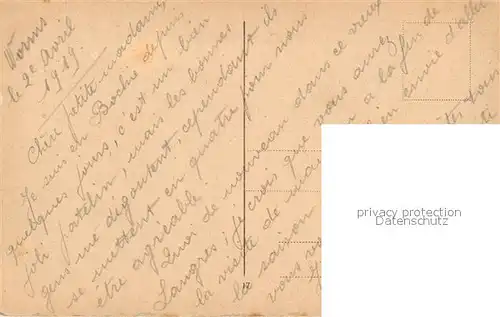 Worms
le 2e Avril
1919.
Chère petite madame,
Je suis en Bochie depuis
quelques jours, c'est un bien
joli patelin, mais les bonnes
gens me dégoutent, cependant ils
se mettent en quatre pour nous
être agréable.
Quoi de nouveau dans ce vieux
Langres, je crois que vous aurez
la visite de à la fin de
la saison envie d'aller
vous
17
privacy protection
Datenschutz